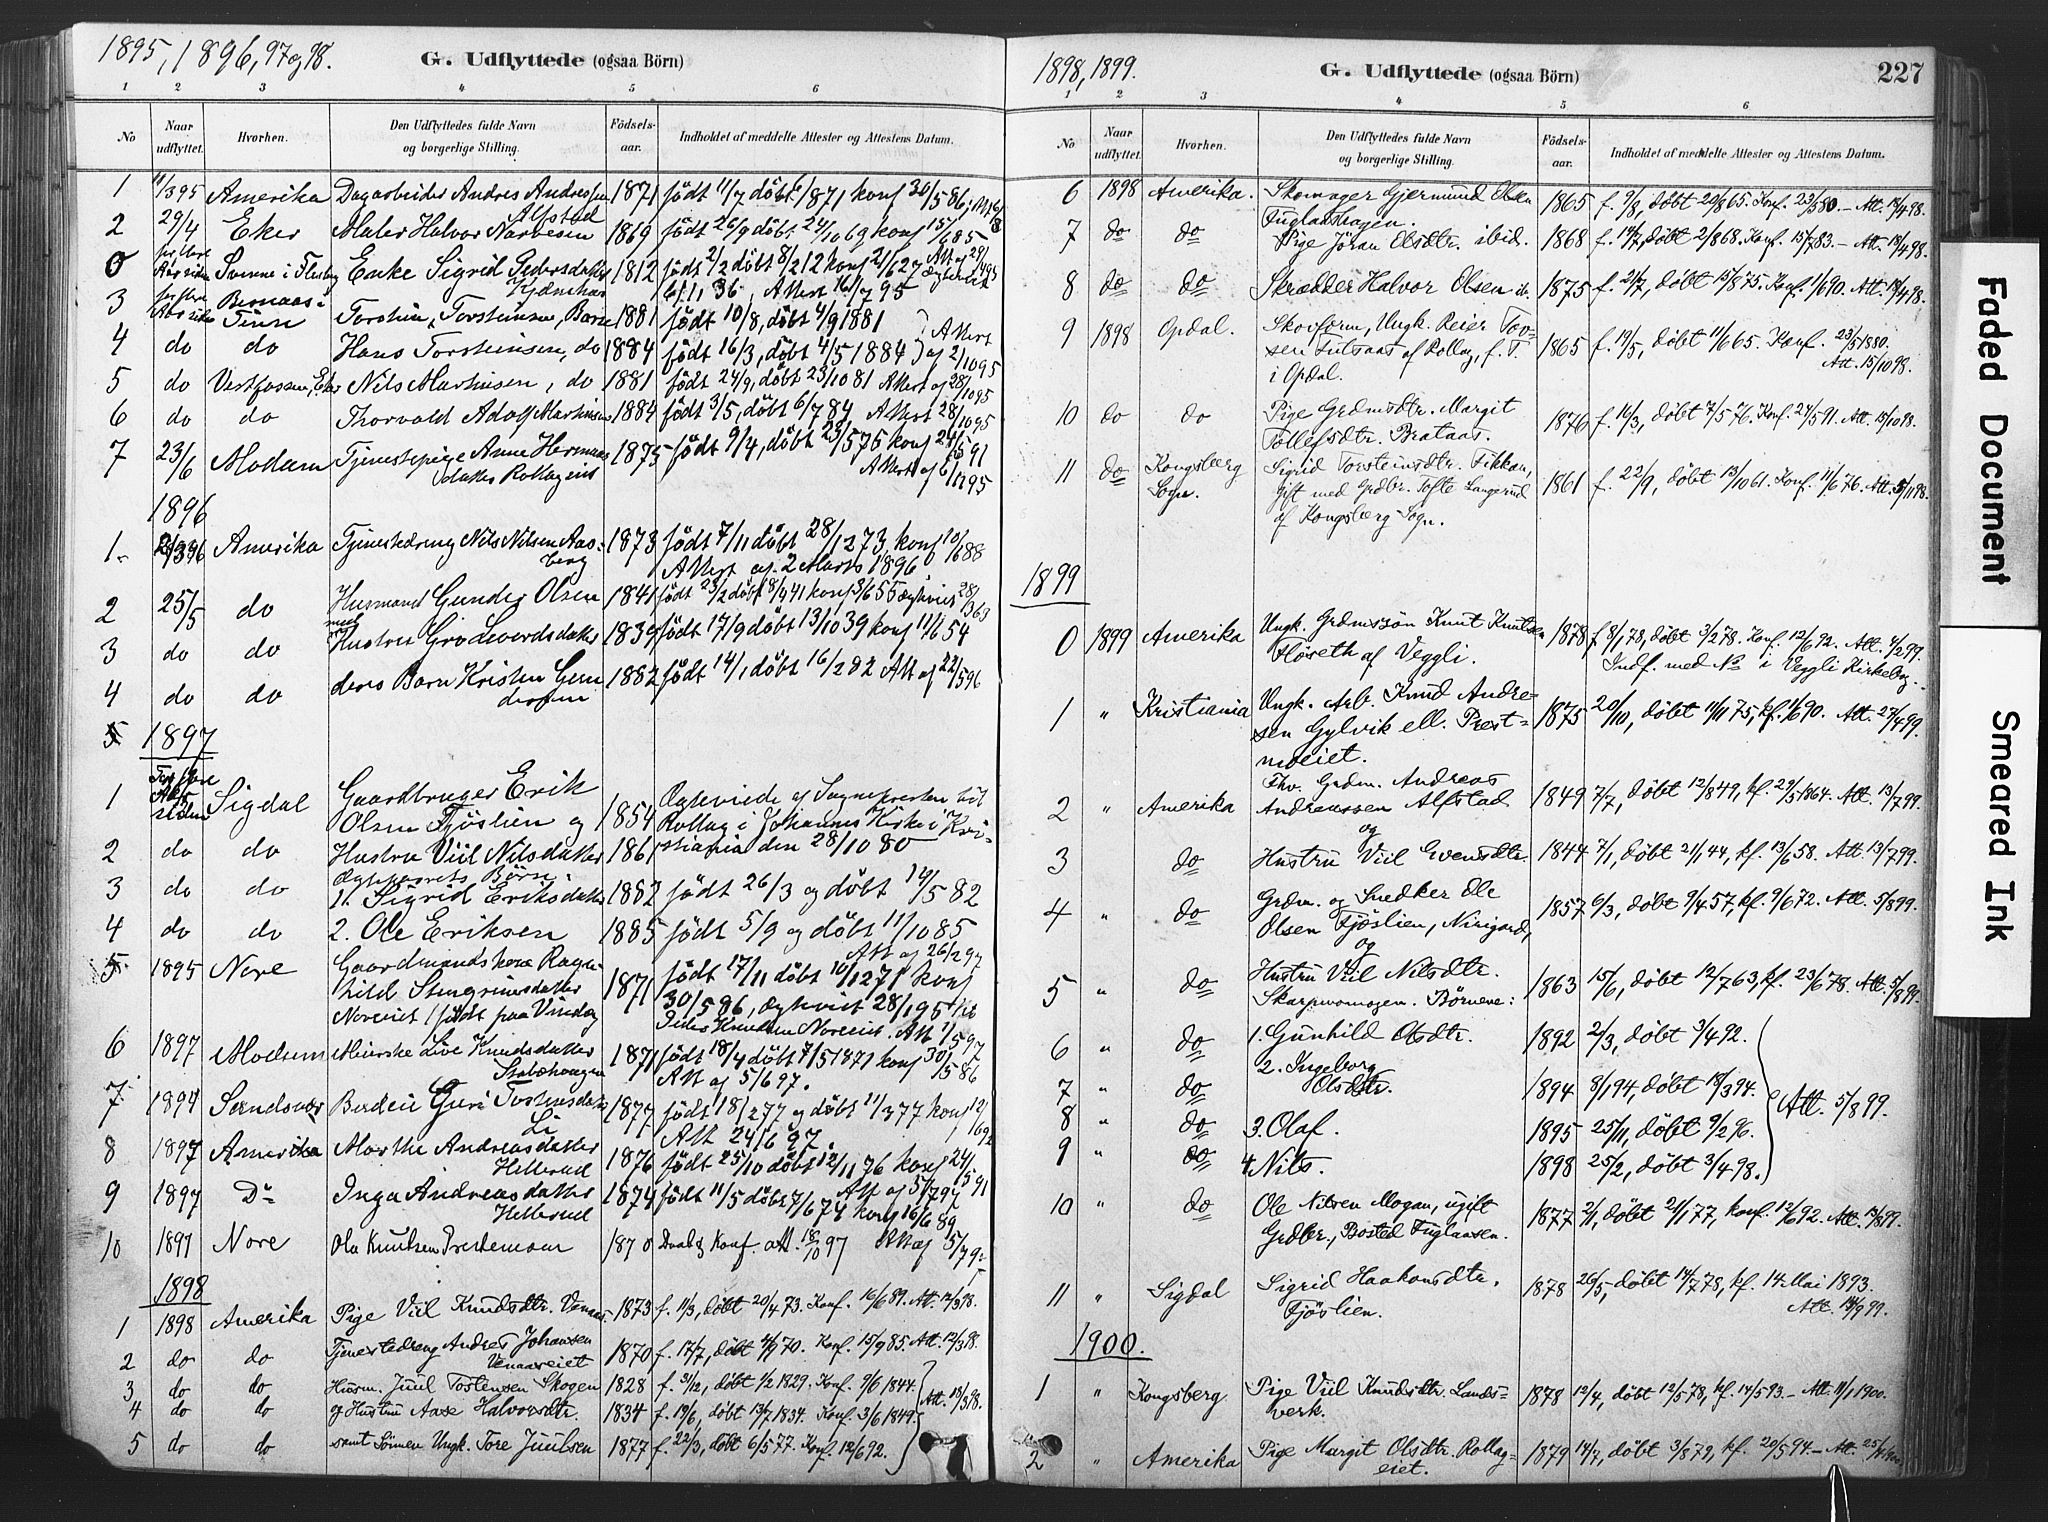 1895, 1896, 97 og 98.
G. Udflyttede (ogsaa Börn)
1 2 3 4 5 6
No
Naar udflyttet.
Hvorhen.
Den Udflyttedes fulde Navn og borgerlige Stilling.
Födselsaar.
Indholdet af meddelte Attester og Attestens Datum.
1 11/3 95 Amerika Dagarbeider Andres Andressen Alfstad 1871 födt 11/7 döbt 6/8 71 konf 30/5 86,
2 29/4 Eker Maler Halvor Narvesen 1869 födt 26/9 döbt 24/10 69 konf 15/6 85
0 Svenne i Flesberg Enke Sigrid Pedersdatter 1812 födt 2/2 döbt 8/2 12 konf 21/6 27
6/11 36, Attest 16/7 95
3 Torstein Torsteinsen, Barn 1881 födt 10/8, döbt 4/9 1881
4 do do Hans Torsteinsen, do 1884 födt 16/3, döbt 4/5 1884 Attest af 2/10 95
5 do Vestfossen, Eker Nils Martinsen, do 1881 födt 24/9, döbt 23/10 81 Attest af 28/10 95
6 do do Thorvald Adolf Martinsen 1884 födt 3/5, döbt 6/7 84 Attest 28/10 95
7 23/6 Modum Tjenestepige Anne Hermansdatter Rollageiet 1875 födt 9/4, döbt 23/5 75 konf 24/5 91
Attest af 6/12 95
1896
1. Amerika Tjenestedreng Nils Nilsen Aasberg 1873 födt 7/11 döbt 28/12 73, konf 10/6 88
Attest af 2 Marts 1896
2 25/5 do Husmand Gunder Olsen 1841 födt 23/2 döbt 18/4 41 konf 3/6 55 Ægteviet 28/3 63
med
3 do do Hustru Gro Leverdsdatter 1839 födt 17/9 döbt 13/10 39 konf 11/6 54
4 do do deres Barn Kristen Gundersen 1882 födt 14/1, döbt 16/2 82 Att af 22/5 96
5 1897
1 Sigdal Gaardbruger Erik Olsen Fjöslien og 1854 Ægteviede af Sognepresten til Rollag i Johannes Kirke i Kristiania den 28/10 80
2 do do Hustru Viil Nilsdatter 1861
Ægteparets Börn:
3 do do 1. Sigrid Eriksdatter 1882 födt 26/3 og döbt 14/5 82
4 do do 2. Ole Eriksen 1885 födt 5/9 og döbt 11/10 85
Att af 26/2 97
5 1895 Nore Gaardmandskone Ragnhild Stengrimsdatter Noreeiet (födt paa Vindeg 1871 födt 17/11 döbt 10/12 71 konf 30/5 86, Ægteviet 28/1 95 til Peder Knudsen Noreeiet. Att 1/5 97
6 1897 Modum Meierske Live Knudsdatter Stabæhaugen 1871 födt 18/4 döbt 7/5 1871 konf 30/5 86
Att af 5/6 97.
7 1897 Sandsvær Guri Tostensdatter Li 1877 födt 18/2 77 og döbt 11/3 77 konf 12/6 92
Att 24/6 97.
8 1897 Amerika Marthe Andreasdatter Hellerud 1876 födt 25/10 döbt 12/11 76 konf 24/5 91
Att af 5/7 97
9 1897 Do Inga Andreasdatter Hellerud 1874 födt 11/5 döbt 7/6 74 konf 16/6 89
10 1897 Nore Ola Knutsen Prestemoen 1870 Daab & Konf. att. 18/10 97
1898
1 1898 Amerika Pige Viil Knudsdtr. Venaas 1873 f. 11/3, döbt 20/4 73. Konf. 16/6 89. Att. 12/3 98.
2 do do Tjenestedreng Andres Johansen Venaaseiet 1870 f. 17/7, döbt 4/9 70. Konf. 15/9 85. Att. 12/3 98.
3 do do Husm. Juul Tostensen Skogen 1828 f. 3/12, döbt 1/2 1829. Konf. 9/6 1844.
4 do do og Hustru Aase Halvorsdtr. 1834 f. 19/6, döbt 13/7 1834. Konf. 3/6 1849. Att. 18/3 98.
5 do do samt Sönnen Ungk. Tore Juulsen 1877 f. 22/3, döbt 6/5 77. Konf. 12/6 92.
1898, 1899.
G. Udflyttede (ogsaa Börn)
227
1 2 3 4 5 6
No
Naar udflyttet.
Hvorhen.
Den Udflyttedes fulde Navn og borgerlige Stilling.
Födselsaar.
Indholdet af meddelte Attester og Attestens Datum.
6 1898 Amerika. Skomager Gjermund Olsen Fuglaashagen. 1865 f. 9/8, döbt 20/8 65. Konf. 23/5 80. - Att. 18/4 98.
7 do do Pige Jöran Olsdtr. ibid. 1868 f. 14/7, döbt 2/8 68. Konf. 15/7 83. - Att. 18/4 98.
8 do do Skrædder Halvor Olsen ib. 1875 f. 21/7, döbt 15/8 75. Konf. 1/6 90. Att. 18/4 98.
9 1898 Opdal. Skovform, Ungk. Reier Tovsen Lutsaas af Rollag, f. T. i Opdal. 1865 f. 19/5, döbt 11/6 65. Konf. 23/5 1880.
Att. 15/10 98.
10 do do Pige Grdmsdtr. Margit Tollefsdtr. Brataas. 1876 f. 16/3, döbt 7/5 76. Konf. 24/5 91. Att. 15/10 98.
11 do Kongsberg Sogn. Sigrid Torsteinsdtr. Fikkan, gift med Grdbr. Tofte Langerud af Kongsberg Sogn. 1861 f. 22/9, döbt 13/10 61. Konf. 11/6 76. Att. 5/11 98.
1899
0 1899 Amerika Ungk. Grdmssön Knut Knutsen Flöseth af Veggli. 1878 f 8/1 78, döbt 3/2 78. Konf. 12/6 92. Att. 4/2 99.
Indf. med No i Veggli Kirkebog.
1 " Kristiania Ungk. Arb. Knud Andresen Gylvik ell. Prestmoeiet. 1875 20/10, döbt 11/11 75, kf. 1/6 90. Att. 27/4 99.
2 " Amerika Fhv. Grdm. Andreas Andreassen Alfstad 1849 7/7, döbt 12/8 49, kf. 29/5 1864. Att. 13/7 99.
og
3 do Hustru Viil Evensdtr. 1844 7/1, döbt 21/1 44, kf. 13/6 58. Att. 13/7 99.
4 " do Grdm. og Snedker Ole Olsen Fjöslien, Nirigard, 1857 6/3, döbt 9/4 57, kf. 9/6 72. Att. 5/8 99.
og
5 " do Hustru Viil Nilsdtr. Skarpmomogen. Börnene: 1863 15/6, döbt 12/7 63, kf. 23/6 78. Att. 5/8 99.
6 " do 1. Gunhild Olsdtr. 1892 2/3, döbt 3/4 92.
7 " do 2. Ingeborg Olsdtr. 1894 8/1 94, döbt 18/3 94. Att. 5/8 99.
8 " do 3. Olaf. 1895 25/11, döbt 9/2 96.
9 " do 4 Nils. 1898 25/2, döbt 3/4 98.
10 " do Ole Nilsen Mogan, ugift Grdbr., Bosted Fuglaasen. 1877 2/1, döbt 21/1 77, konf. 12/6 92. Att. 13/8 99.
11 " Sigdal Sigrid Haakonsdtr. Fjöslien. 1878 26/5, döbt 14/7 78, kf. 14 Mai 1893.
Att. 18/9 99.
1900.
1 " Kongsberg Pige Viil Knudsdtr. Landsverk. 1878 12/4, döbt 12/5 78, kf. 14/5 93. - Att. 11/1 1900.
2 " Amerika Pige Margit Olsdtr. Rollageiet. 1879 14/7, döbt 3/8 79, kf. 20/5 94. - Att.
Faded Document
Smeared Ink